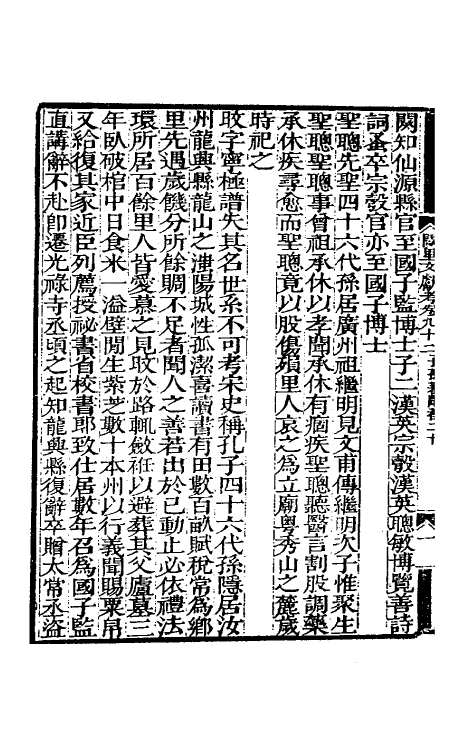 闕知仙源縣官至國子監博士子二漢英宗彀漢英聰敏博覽善詩
詞蚤卒宗彀官亦至國子博士
聖聰先聖四十六代孫居廣州祖繼明見文甫傳繼明次子惟聚生
聖聰聖聰事曾祖承休以孝聞承休有痼疾聖聰聽醫言割股調藥
承休疾尋愈而聖聰竟以股傷殞里人哀之為立廟粤秀山之麓歲
時祀之
旼字寧極譜失其名世系不可考宋史稱孔子四十六代孫隱居汝
州龍興縣龍山之滍陽城性孤潔喜讀書有田數百畝賦稅常為鄉
里先遇歲饑分所餘賙不足者聞人之善若出於已動止必依禮法
環所居百餘里人皆愛慕之見旼於路輒斂袵以避葬其父廬墓三
年臥破棺中日食米一溢壁閒生紫芝數十本州以行義聞賜粟帛
又給復其家近臣列薦授祕書省校書郎致仕居數年召為國子監
直講辭不赴卽遷光祿寺丞頃之起知龍興縣復辭卒贈太常丞盜